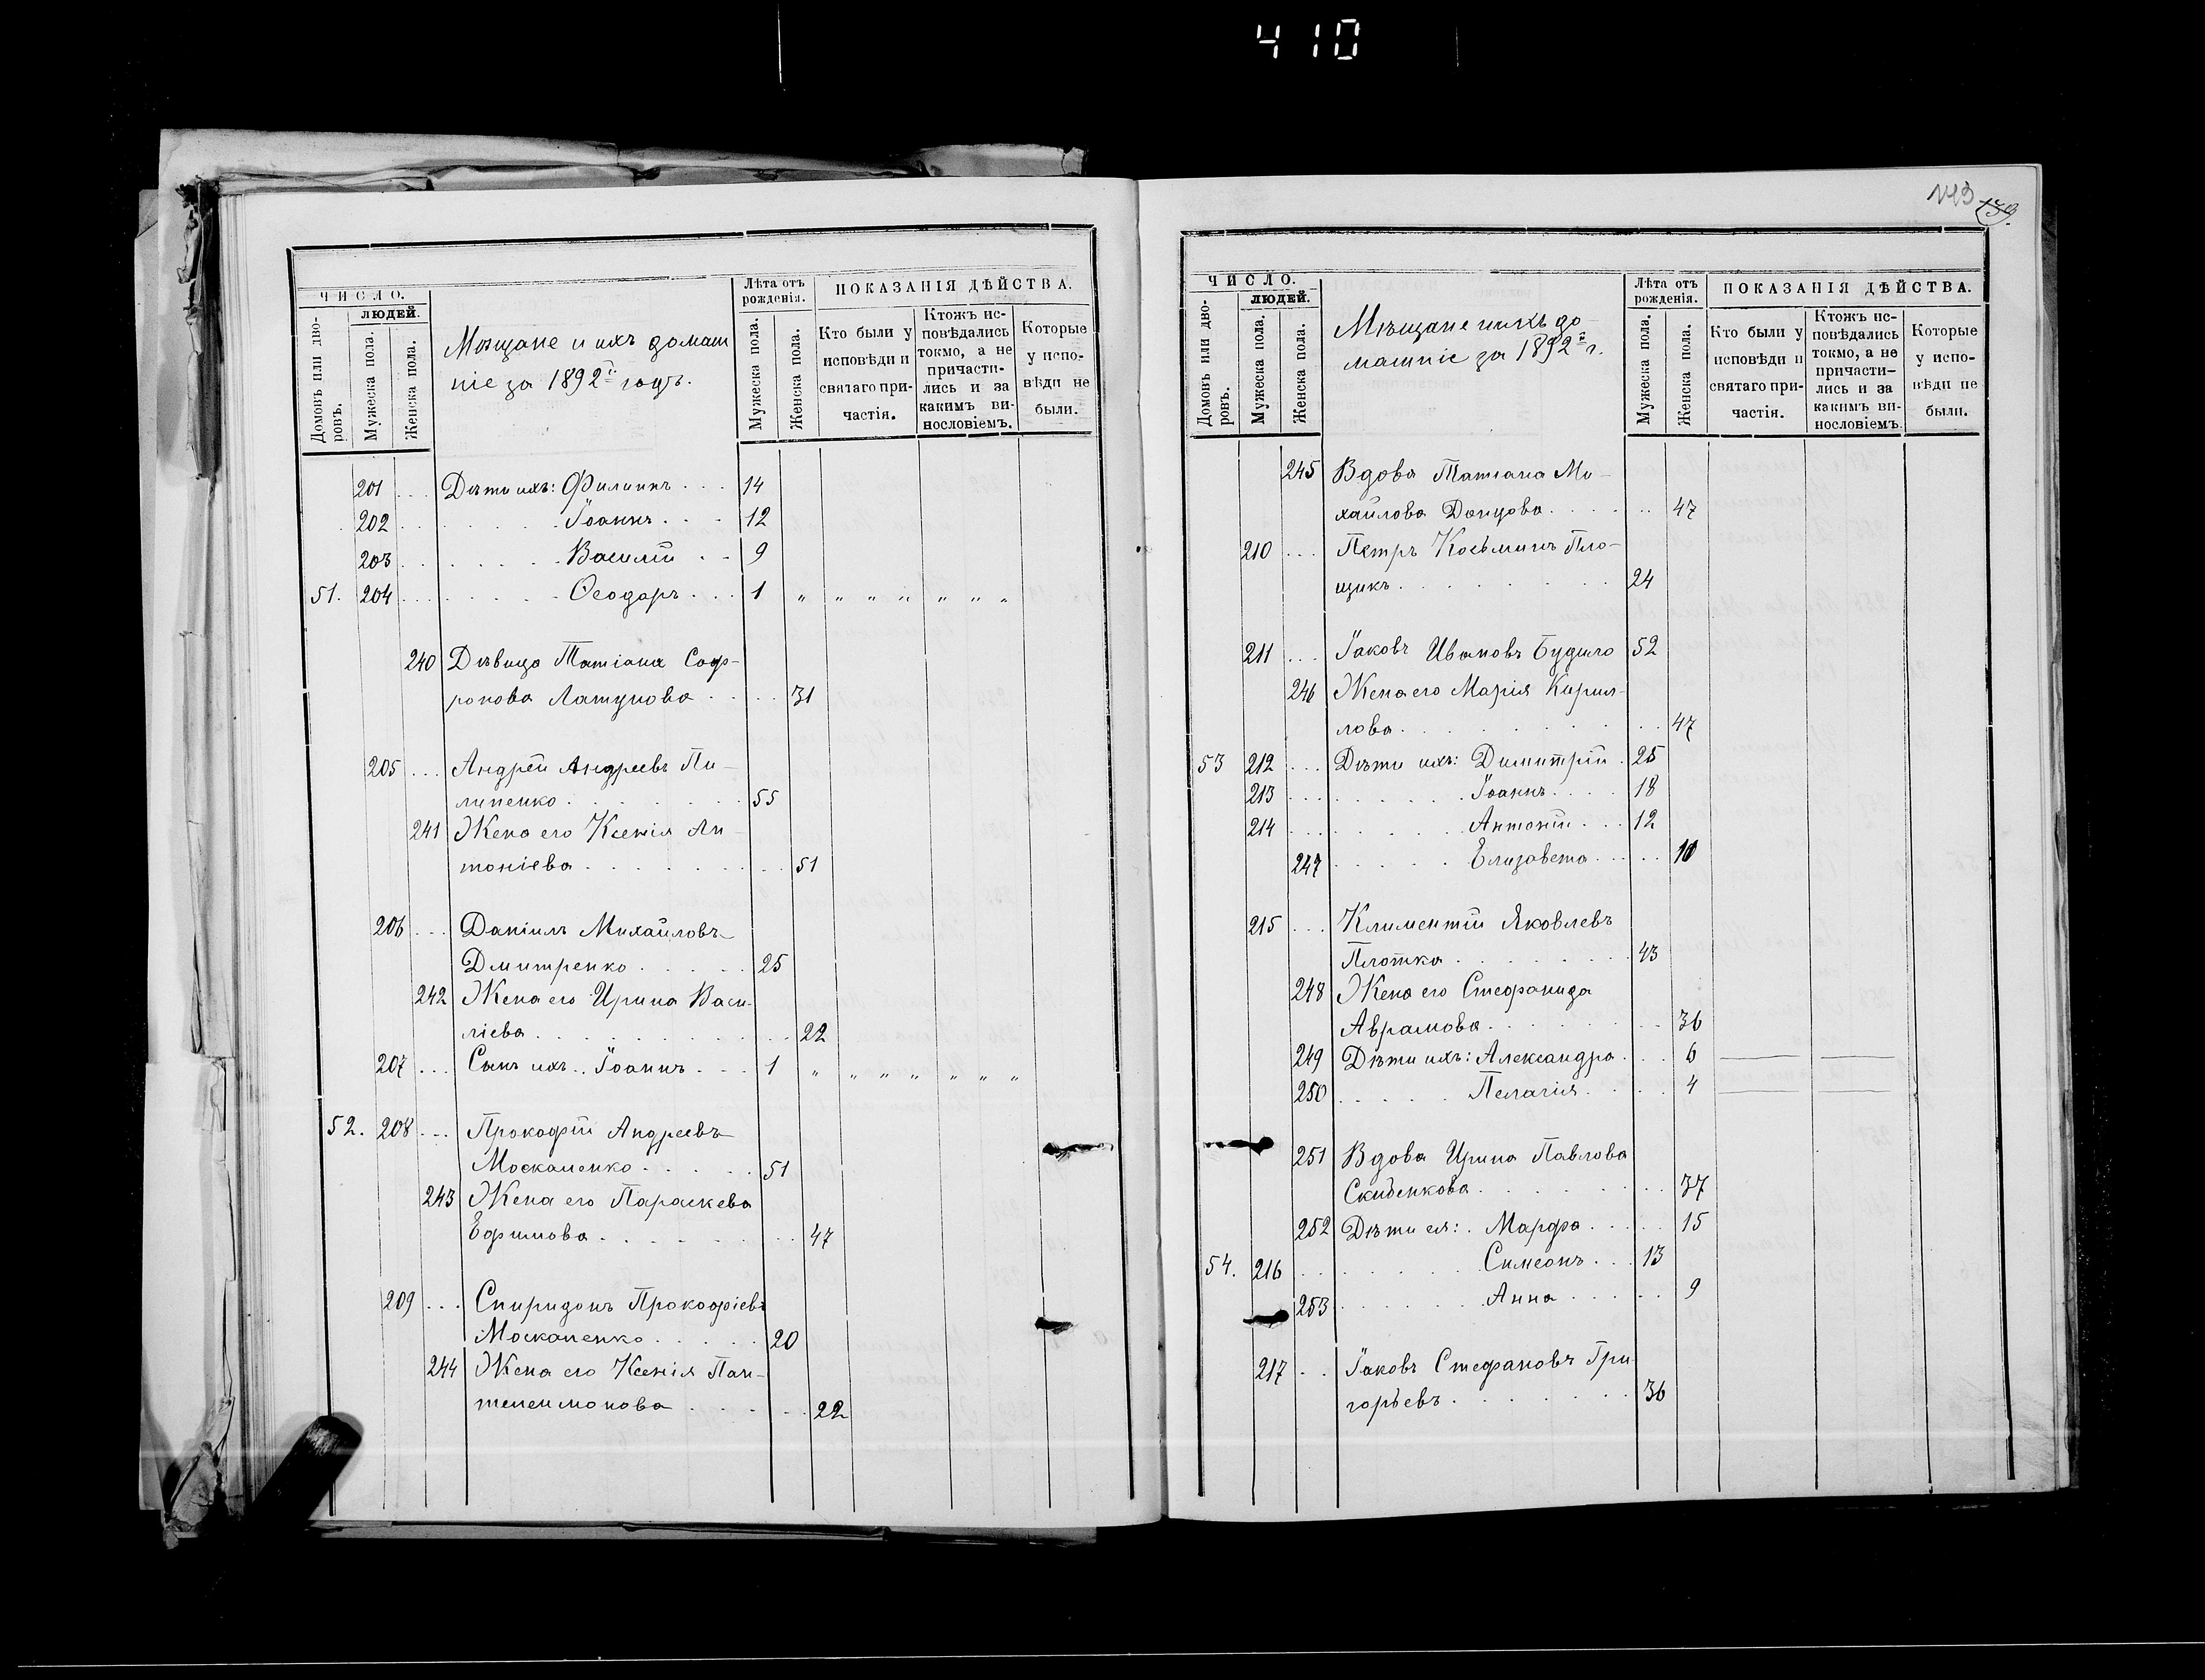 410
ЧИСЛО.
ЛЮДЕЙ.
Домовъ или дворовъ.
Мужеска пола.
Женска пола.
Мѣщане и ихъ домаш
ніе за 1892й годъ.
Лѣта отъ рожденія.
Мужеска пола.
Женска пола.
ПОКАЗАНІЯ ДѢЙСТВА.
Кто были у исповѣди и святаго причастія.
Ктожъ исповѣдались токмо, а не причастились и за какимъ винословіемъ.
Которые у исповѣди не были.
201 ... Дѣти ихъ: Филиппъ ... 14
202 ... Іоаннъ ... 12
203 ... Василій ... 9
51. 204 ... Ѳеодоръ ... 1 " " " " " " "
240 Дѣвица Татіана Соф-
ронова Латунова ... 31
205 ... Андрей Андреевъ Пи-
липенко ... 55
241 Жена его Ксенія Ан-
тоніева ... 51
206 ... Даніилъ Михайловъ
Дмитренко ... 25
242 Жена его Ирина Васи-
ліева ... 22
207 ... Сынъ ихъ .. Іоаннъ ... 1 " " " " " " "
52. 208 ... Прокофій Андреевъ
Москаленко ... 51
243 Жена его Параскева
Ефимова ... 47
209 ... Спиридонъ Прокофіевъ
Москаленко ... 20
244 Жена его Ксенія Пан-
телеимонова ... 22
143 139.
ЧИСЛО.
ЛЮДЕЙ.
Домовъ или дворовъ.
Мужеска пола.
Женска пола.
Мѣщане и ихъ до-
машніе за 1892й г.
Лѣта отъ рожденія.
Мужеска пола.
Женска пола.
ПОКАЗАНІЯ ДѢЙСТВА.
Кто были у исповѣди и святаго причастія.
Ктожъ исповѣдались токмо, а не причастились и за какимъ винословіемъ.
Которые у исповѣди не были.
245 Вдова Татіана Ми-
хайлова Донцова ... 47
210 ... Петръ Косьминъ Пло-
щикъ ... 24
211 ... Іаковъ Ивановъ Будило 52
246 Жена его Марія Кирил-
лова ... 47
53 212 ... Дѣти ихъ: Димитрій . 25
213 ... Іоаннъ ... 18
214 ... Антоній ... 12
247 ... Елизавета ... 10
215 ... Климентій Яковлевъ
Плотка ... 43
248 Жена его Стефанида
Аврамова ... 36
249 Дѣти ихъ: Александра ... 6
250 ... Пелагія ... 4
251 Вдова Ирина Павлова
Скиденкова ... 37
252 Дѣти ея: . Марфа ... 15
54. 216 ... Симеонъ ... 13
253 ... Анна ... 9
217 .. Іаковъ Стефановъ Гри-
горьевъ ... 36